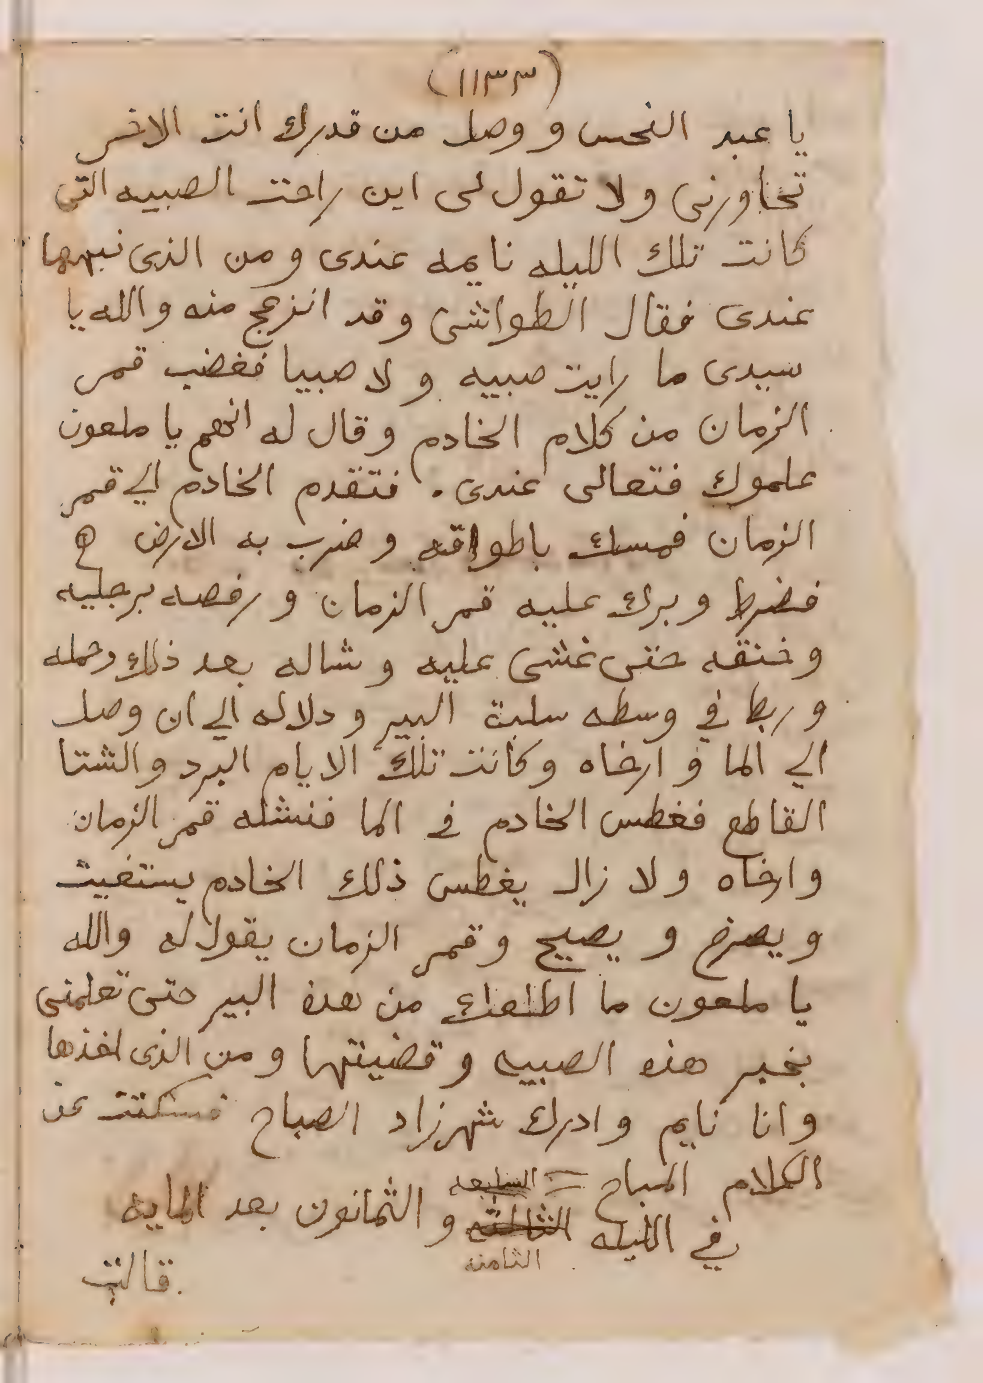 (١١٣٣)
يا عبد النحس و وصل من قدرك انت الاخر
تحاورنى ولا تقول لى اين راحت الصبيه التى
كانت تلك الليله نايمه عندى ومن الذى نبهها
عندى فقال الطواشى وقد انزعج منه والله يا
سيدى ما رايت صبيه ولا صبيا فغضب قمر
الزمان من كلام الخادم وقال له انهم يا ملعون
علموك فتعالى عندى . فتقدم الخادم الي قمر
الزمان فمسك باطواقه وضرب به الارض ه
فضرط وبرك عليه قمر الزمان ورفصه برجليه
وخنقه حتى غشى عليه وشاله بعد ذلك وحمله
وربط في وسطه سلبة البير ودلاله الي ان وصل
الي الما و ارخاه وكانت تلك الايام البرد والشتا
القاطع فغطس الخادم في الما فنشله قمر الزمان
وارخاه ولا زال يغطس ذلك الخادم يستغيث
ويصرخ و يصيح وقمر الزمان يقول له والله
يا ملعون ما اطلعك من هده البير حتى تعلمنى
بخبر هذه الصبيه وقضيتها ومن الذى اخذها
وانا نايم وادرك شهرزاد الصباح فسكتت عن
الكلام المباح = السابعه
في الليله الثالثه و الثمانون بعد المايه
الثامنه
قالت